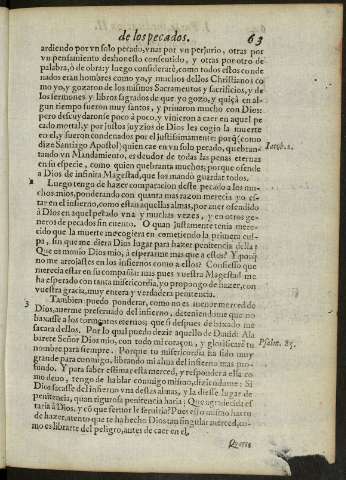 de los pecados. 63
ardiendo por vn solo pecado, vnas por vn perjurio, otras por
vn pensamiento deshonesto consetido, y otras por otro de
palabra, ò de obra: y luego considerarè, como todos estos conde
nados eran hombres como yo, y muchos dellos Christianos co
mo yo, y gozaron de los mismos Sacramentos y sacrificios, y de
los sermones y libros sagrados de que yo gozo, y quiçà en al-
gun tiempo fueron muy santos, y priuaron mucho con Dios:
pero descuydaronse poco à poco, y vinieron a caer en aquel pe
cado mortal; y por justos juyzios de Dios les cogio la muerte
en el, y fueron condenados por el justissimamente: porq̃ (como
dize Santiago Apostol) quien cae en vn solo pecado, quebran-
Iacob. 2.
tando vn Mandamiento, es deudor de todas las penas eternas
en su especie, como quien quebranta muchos; porque ofende
a Dios de infinita Magestad, que los mandò guardar todos.
Luego tengo de hazer comparacion deste pecado a los mu
chos mios, ponderando con quanta mas razon merecia yo es-
tar en el infierno, como estan aquellas almas, por auer ofendido
à Dios en aquel pecado vna y muchas vezes, y en otros ge-
neros de pecados sin cuento. O quan justamente tenia mere-
cido que la muerte me cogiera en cometiendo la primera cul-
pa, sin que me diera Dios lugar para hazer penitencia della!
Que os mouio Dios mio, à esperarme mas que a ellos? Y porq̃
no me arrojastes en los infiernos como a ellos? Confiesso que
merecia estar en su compañia: mas pues vuestra Magestad me
ha esperado con tanta misericordia, yo propongo de hazer, con
vuestra gracia, muy entera y verdadera penitencia.
3 Tambien puedo ponderar, como no es menor merced de
Dios, auerme preseruado del infierno, deteniendome que no
baxasse a los tormentos eternos; que si despues de baxado me
sacara dellos. Por lo qual puedo dezir aquello de Dauid: Ala
barete Señor Dios mio, con todo mi coraçon, y glorificarè tu
Psalm. 85.
nombre para siempre. Porque tu misericordia ha sido muy
grande para conmigo, librando mi alma del infierno mas pro-
fundo. Y para saber estimar esta merced, y responder a ella co-
mo deuo, tengo de hablar conmigo mismo, diziendome: Si
Dios sacasse del infierno vna destas almas, y la diesse lugar de
penitencia, quan rigurosa penitencia haria? Que agradecida es
taria à Dios, y cõ que feruor le seruiria? Pues esso mismo has tu
de hazer, atento que te ha hecho Dios tan singular merced, co-
mo es librarte del peligro, antes de caer en el.